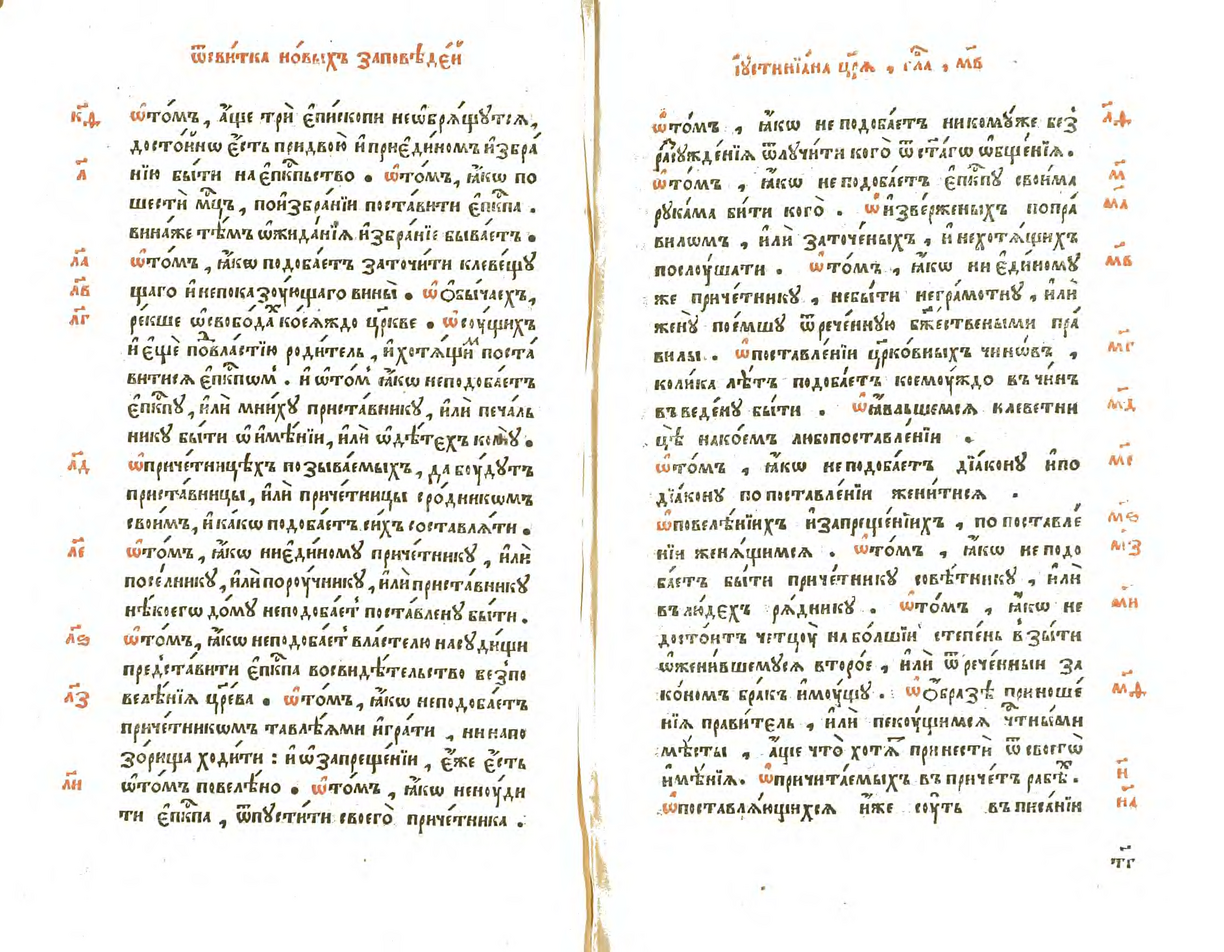 ѿсви́тка но́выхъ заповѣде́й
к҃ѳ ѡ҆то́мъ, а҆́ще трѝ є҆пи́скопи неѡ҆брѧ́щутсѧ,
досто́йнѡ є҆́сть придвою̀ и҆приє҆ди́номъ и҆збра́
л҃ нїю бы́ти на є҆пⷭ҇кпьство . ѡ҆то́мъ, ꙗ҆́кѡ по
шестѝ мⷭ҇цъ, пои҆збра́нїи поста́вити є҆пⷭ҇кпа .
вина́же тѣ́мъ ѡ҆жида́нїѧ и҆збра́нїе быва́етъ .
л҃а ѡ҆то́мъ, ꙗ҆́кѡ подоба́етъ заточи́ти клевещꙋ
л҃в щаго и҆непоказоу́ющаго вины̀ . ѡ҆ ѻ҆бы́чаехъ,
л҃г ре́кше ѡ҆свобо́дахъ кое́ѧждо цр҃кве . ѡ҆соу́щихъ
и҆ є҆щѐ по́двластїю роди́тель, и҆хотѧ́щимъ поста́
витисѧ є҆пⷭ҇кпѡмъ . и҆ ѡ҆то́мъ ꙗ҆́кѡ неподоба́етъ
є҆пⷭ҇кпꙋ, и҆лѝ мни́хꙋ приста́вникꙋ, и҆лѝ печа́ль
никꙋ бы́ти ѡ҆ и҆мѣ́нїи, и҆лѝ ѡ҆дѣ́техъ комꙋ̀ .
л҃д ѡ҆приче́тницѣхъ позыва́емыхъ, да боу́дꙋтъ
приста́вницы, и҆лѝ приче́тницы сро́дникѡмъ
свои́мъ, и҆ка́кѡ подоба́етъ си́хъ составлѧ́ти .
л҃е ѡ҆то́мъ, ꙗ҆́кѡ ниє҆ди́номꙋ приче́тникꙋ, и҆лѝ
посе́лникꙋ, и҆лѝ пороу́чникꙋ, и҆лѝ приста́вникꙋ
нѣ́коегѡ до́мꙋ неподоба́етъ поста́вленꙋ бы́ти .
л҃ѕ ѡ҆то́мъ, ꙗ҆́кѡ неподоба́етъ вла́стелю насꙋ́дищи
предста́вити є҆пⷭ҇кпа восвидѣ́тельство безпо
л҃з велѣ́нїѧ цр҃е́ва . ѡ҆то́мъ, ꙗ҆́кѡ неподоба́етъ
приче́тникѡмъ тавлѣ́ями и҆гра́ти , ни напо
зо́рища ходи́ти : и҆ ѡ҆ запреще́нїи , є҆́же є҆́сть
л҃и ѡ҆то́мъ повелѣ́но . ѡ҆то́мъ , ꙗ҆́кѡ неноу́ди
ти є҆пⷭ҇кпа , ѿпꙋсти́ти своего̀ приче́тника .
і҆ꙋстинїа́на цр҃ѧ̀ , гла , м҃в
ѡ҆то́мъ , ꙗ҆́кѡ не подоба́етъ никомꙋ́же без̾ л҃ѳ
разсꙋжде́нїѧ ѿлꙋчи́ти кого̀ ѿ ст҃а́гѡ ѡ҆бще́нїѧ .
ѡ҆то́мъ , ꙗ҆́кѡ не подоба́етъ є҆пⷭ҇кпꙋ свои́ма м҃
рꙋка́ма би́ти кого̀ . ѡ҆и҆зве́рженыхъ попра́ м҃а
вилѡмъ , и҆лѝ заточе́ныхъ , и҆ нехотѧ́щихъ
послоу́шати . ѡ҆то́мъ , ꙗ҆́кѡ ни є҆ди́номꙋ м҃в
же приче́тникꙋ , небы́ти негра́мотнꙋ , и҆лѝ
женꙋ̀ пое́мшꙋ ѿрече́ннꙋю бж҃е́ствеными пра́
вилы . ѡ҆поставле́нїи цр҃ко́вныхъ чинѡ́въ , м҃г
коли́ка лѣ́тъ подоба́етъ коемоу́ждо въ чи́нъ
въведе́нꙋ бы́ти . ѡ҆ꙗ҆́вльшемсѧ клеветни м҃д
цѣ̀ накое́мъ либо поставле́нїи .
ѡ҆то́мъ , ꙗ҆́кѡ неподоба́етъ дїа́конꙋ и҆по м҃е
дїа́конꙋ по поставле́нїи жени́тисѧ .
ѡ҆повелѣ́нїихъ и҆запреще́нїихъ , по поставле́ м҃ѕ
нїи женѧ́щимсѧ . ѡ҆то́мъ , ꙗ҆́кѡ не подо м҃з
ба́етъ бы́ти приче́тникꙋ совѣ́тникꙋ , и҆лѝ
въ лю́дехъ рѧ́дникꙋ . ѡ҆то́мъ , ꙗ҆́кѡ не м҃и
досто́итъ четцоу̀ на бо́лшїи степе́нь взы́ти
ѡ҆жени́вшемꙋсѧ второ́е , и҆лѝ ѿрече́нныи за
ко́номъ бра́къ и҆моу́щꙋ . ѡ҆ѻ҆́бразѣ приноше́ м҃ѳ
нїѧ прави́тель , и҆лѝ пекоу́щимсѧ чтⷭ҇ны́ми
мѣ́сты , а҆́ще что̀ хотѧ́тъ принестѝ ѿ своегѡ̀
и҆мѣ́нїѧ . ѡ҆причита́емыхъ въ приче́тъ рабѣ́хъ . н҃
ѡ҆поставлѧ́ющихсѧ и҆́же соу́ть въ писа́нїи н҃а
т҃г